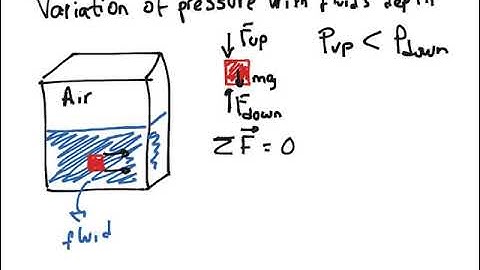 Variation of pressure with fluids depth
Air
fluid
F⃗up
mg
F⃗down
Pup < Pdown
ΣF⃗ = 0